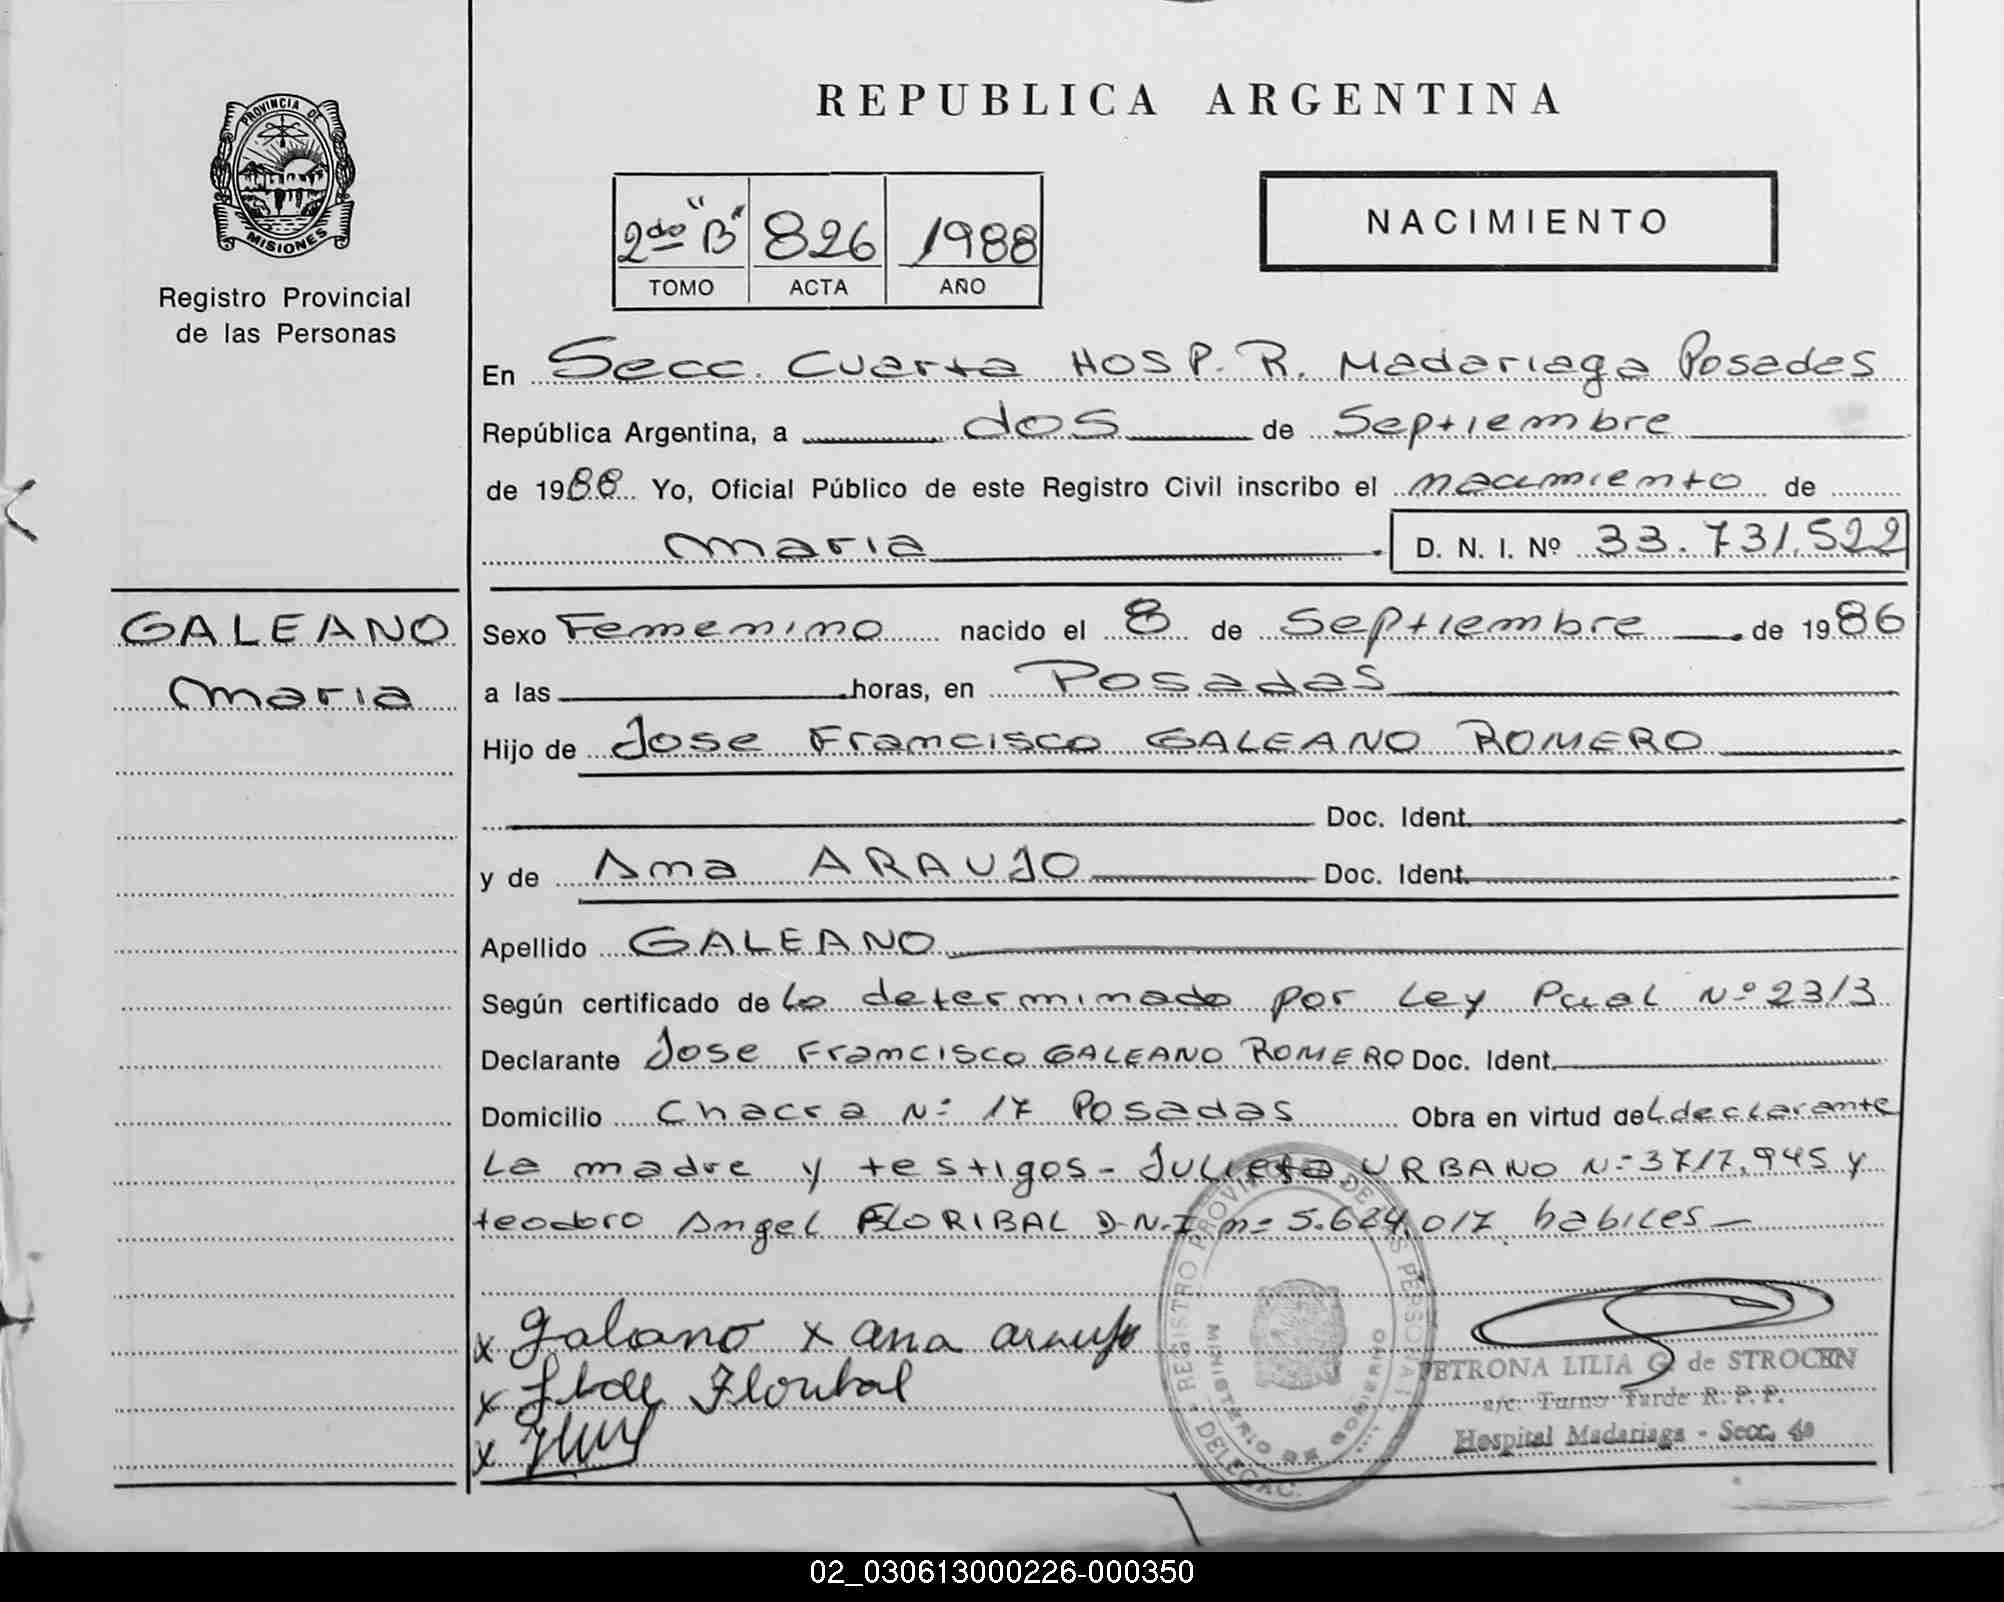 PROVINCIA DE
MISIONES
Registro Provincial
de las Personas
GALEANO
Maria
REPUBLICA ARGENTINA
2do "B" 826 1988
TOMO ACTA AÑO
NACIMIENTO
En Secc. Cuarta HOSP. R. Madariaga Posadas
República Argentina, a dos de Septiembre
de 1988 Yo, Oficial Público de este Registro Civil inscribo el nacimiento de
Maria D. N. I. Nº 33.731.522
Sexo Femenino nacido el 8 de Septiembre de 1986
a las horas, en Posadas
Hijo de Jose Francisco GALEANO ROMERO
Doc. Ident.
y de Ana ARAUJO Doc. Ident.
Apellido GALEANO
Según certificado de lo determinado por Ley Pcial Nº 2313
Declarante Jose Francisco GALEANO ROMERO Doc. Ident.
Domicilio Chacra Nº 17 Posadas Obra en virtud del declarante
La madre y testigos - Julieta URBANO Nº 3717.945 y
teodoro Angel FLORIBAL D.N.I nº 5.624.017 habiles
x Galeano x ana araujo
x Floribal
x
REGISTRO PROVINCIAL DE LAS PERSONAS
MINISTERIO DE GOBIERNO
DELEGAC.
PETRONA LILIA G. de STROCEN
a/c. Turno Tarde R. P. P.
Hospital Madariaga - Secc. 4a
02_030613000226-000350